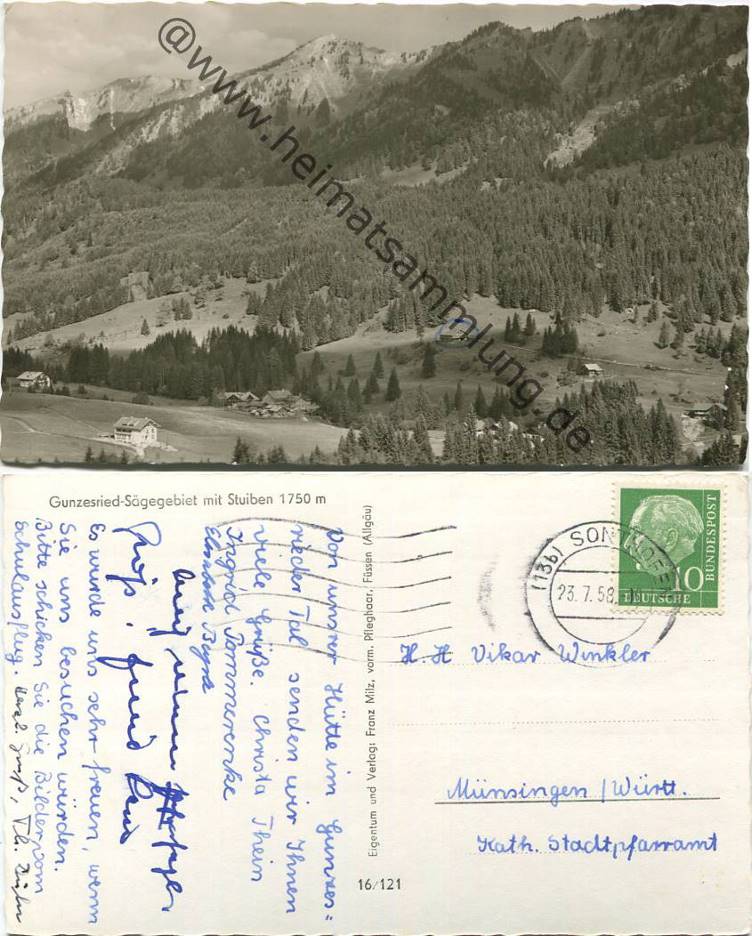 @www.heimatsammlung.de
Gunzesried-Sägegebiet mit Stuiben 1750 m
Von unsrer Hütte im Gunzes=
rieder Tal senden wir Ihnen
viele Grüße. Christa Thein
Ingrid Pommerenke
Elisabeth
Es wurde uns sehr freuen, wenn
Sie uns besuchen würden.
Bitte schicken Sie die Bilder vom
Schulausflug.
Eigentum und Verlag: Franz Milz, vorm. Pfleghaar, Füssen (Allgäu)
16/121
(13b) SONTHOFEN
23.7.58
10
DEUTSCHE
BUNDESPOST
H. H Vikar Winkler
Münsingen /Württ.
Kath. Stadtpfarramt